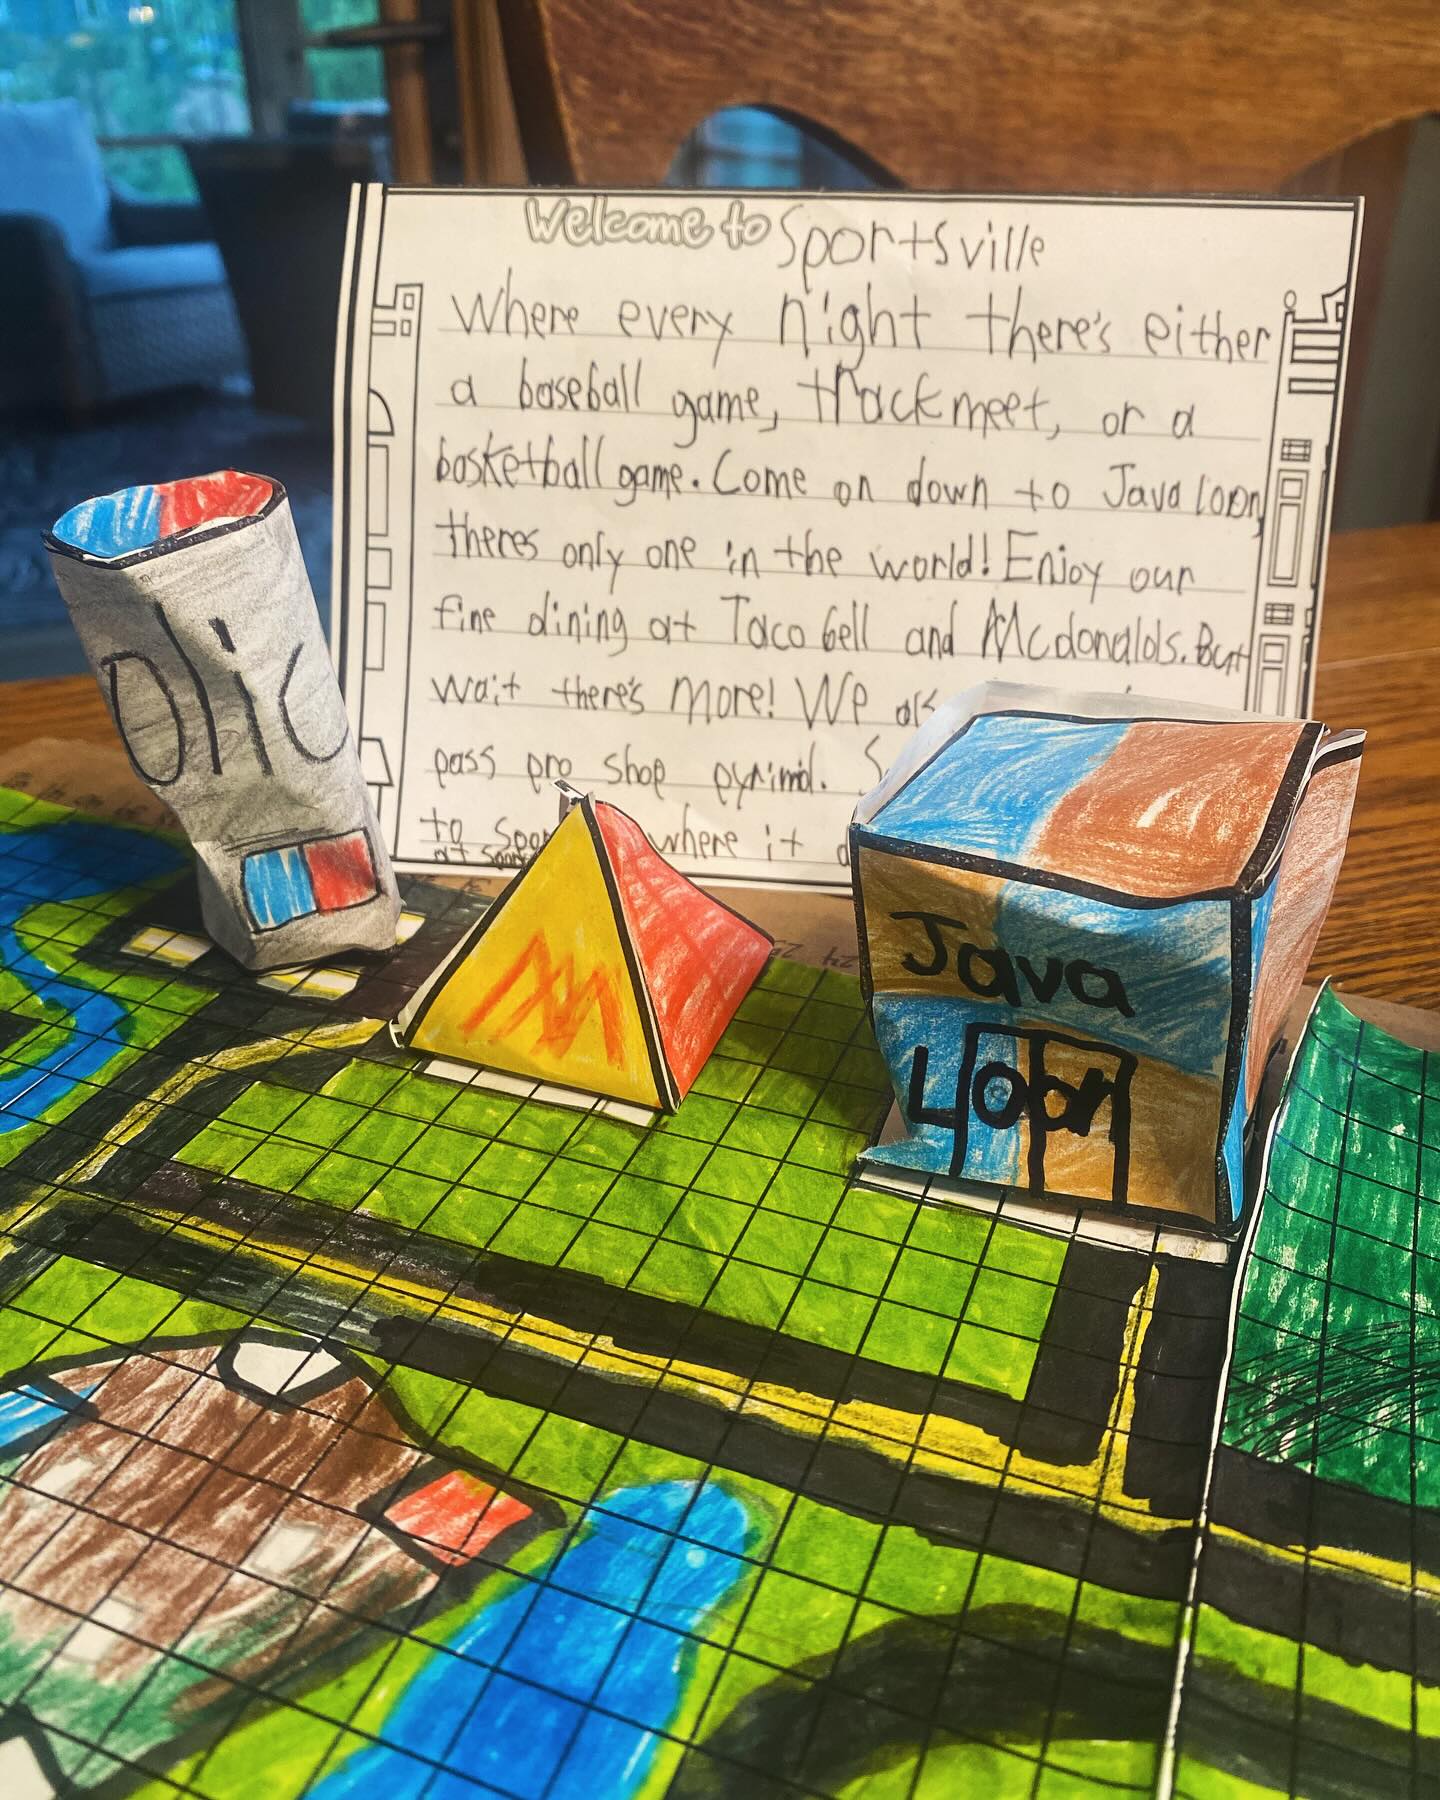 Welcome to Sportsville
Where every night there's either
a baseball game, track meet, or a
basketball game. Come on down to Java loon,
theres only one in the world! Enjoy our
fine dining at Taco bell and Mcdonalds. But
wait there's more! We
pass pro shop pyrimid.
to where it
at
olic
M
Java
Loon
24